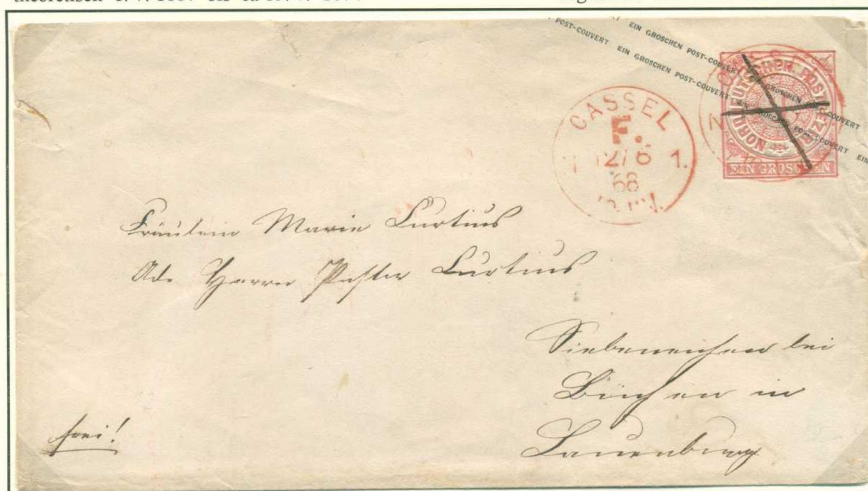 EIN GROSCHEN POST-COUVERT EIN GROSCHEN POST-COUVERT
POST-COUVERT EIN GROSCHEN POST-COUVERT EIN GROSCHEN POST-COUVERT EIN
NORDDEUTSCHER POSTBEZIRK
EIN GROSCHEN
CASSEL
F.
12/6
68
1.
Fräulein Marie Curtius
Adr. Herrn Pastor Curtius
Siebeneichen bei
Büchen in
Lauenburg
frei!